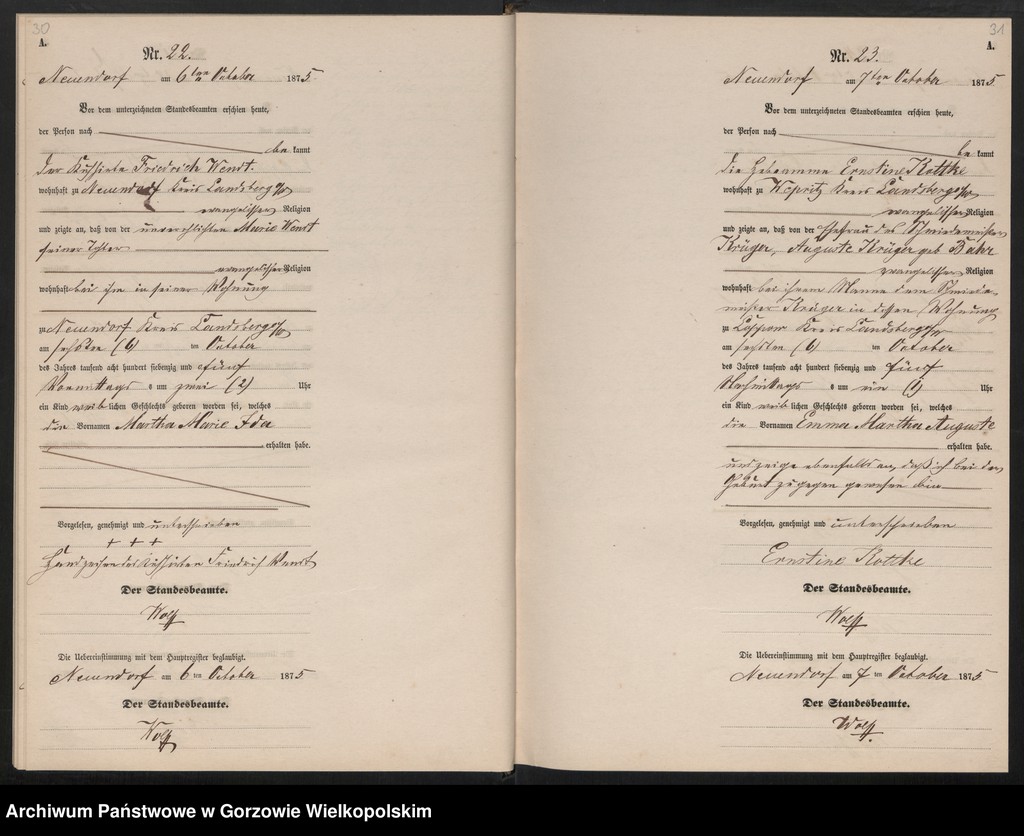 30
A.
Nr. 22.
Neuendorf am 6ten October 1875
Vor dem unterzeichneten Standesbeamten erschien heute,
der Person nach
bekannt
der Kuhhirte Friedrich Wendt.
wohnhaft zu Neuendorf Kreis Landsberg a/W
evangelischer Religion
und zeigte an, daß von der unverehlichten Marie Wendt
seiner Tochter
evangelischer Religion
wohnhaft bei ihm in seiner Wohnung
zu Neuendorf Kreis Landsberg a/W
am sechsten (6) ten October
des Jahres tausend acht hundert siebenzig und fünf
Vormittags um zwei (2) Uhr
ein Kind weiblichen Geschlechts geboren worden sei, welches
die Vornamen Martha Marie Ida
erhalten habe.
Vorgelesen, genehmigt und unterschrieben
+ + +
Handzeichen des Kuhhirten Friedrich Wendt
Der Standesbeamte.
Wolff
Die Uebereinstimmung mit dem Hauptregister beglaubigt.
Neuendorf am 6 ten October 1875
Der Standesbeamte.
Wolff
31
A.
Nr. 23.
Neuendorf am 7ten October 1875.
Vor dem unterzeichneten Standesbeamten erschien heute,
der Person nach
bekannt
die Hebeamme Ernstine Kottke
wohnhaft zu Zopritz Kreis Landsberg a/W
evangelischer Religion
und zeigte an, daß von der Ehefrau des Schmiedemeister
Krüger, Auguste Krüger geb Bähr
evangelischer Religion
wohnhaft bei ihrem Manne dem Schmiede-
meister Krüger in dessen Wohnung
zu Kreis Landsberg a/W
am sechsten (6) ten October
des Jahres tausend acht hundert siebenzig und fünf
Nachmittags um ein (1) Uhr
ein Kind weiblichen Geschlechts geboren worden sei, welches
die Vornamen Emma Martha Auguste
erhalten habe.
und zeige ebenfalls an, daß ich bei der
Geburt zugegen gewesen bin
Vorgelesen, genehmigt und unterschrieben
Ernstine Kottke
Der Standesbeamte.
Wolff
Die Uebereinstimmung mit dem Hauptregister beglaubigt.
Neuendorf am 7 ten October 1875
Der Standesbeamte.
Wolff.
Archiwum Państwowe w Gorzowie Wielkopolskim